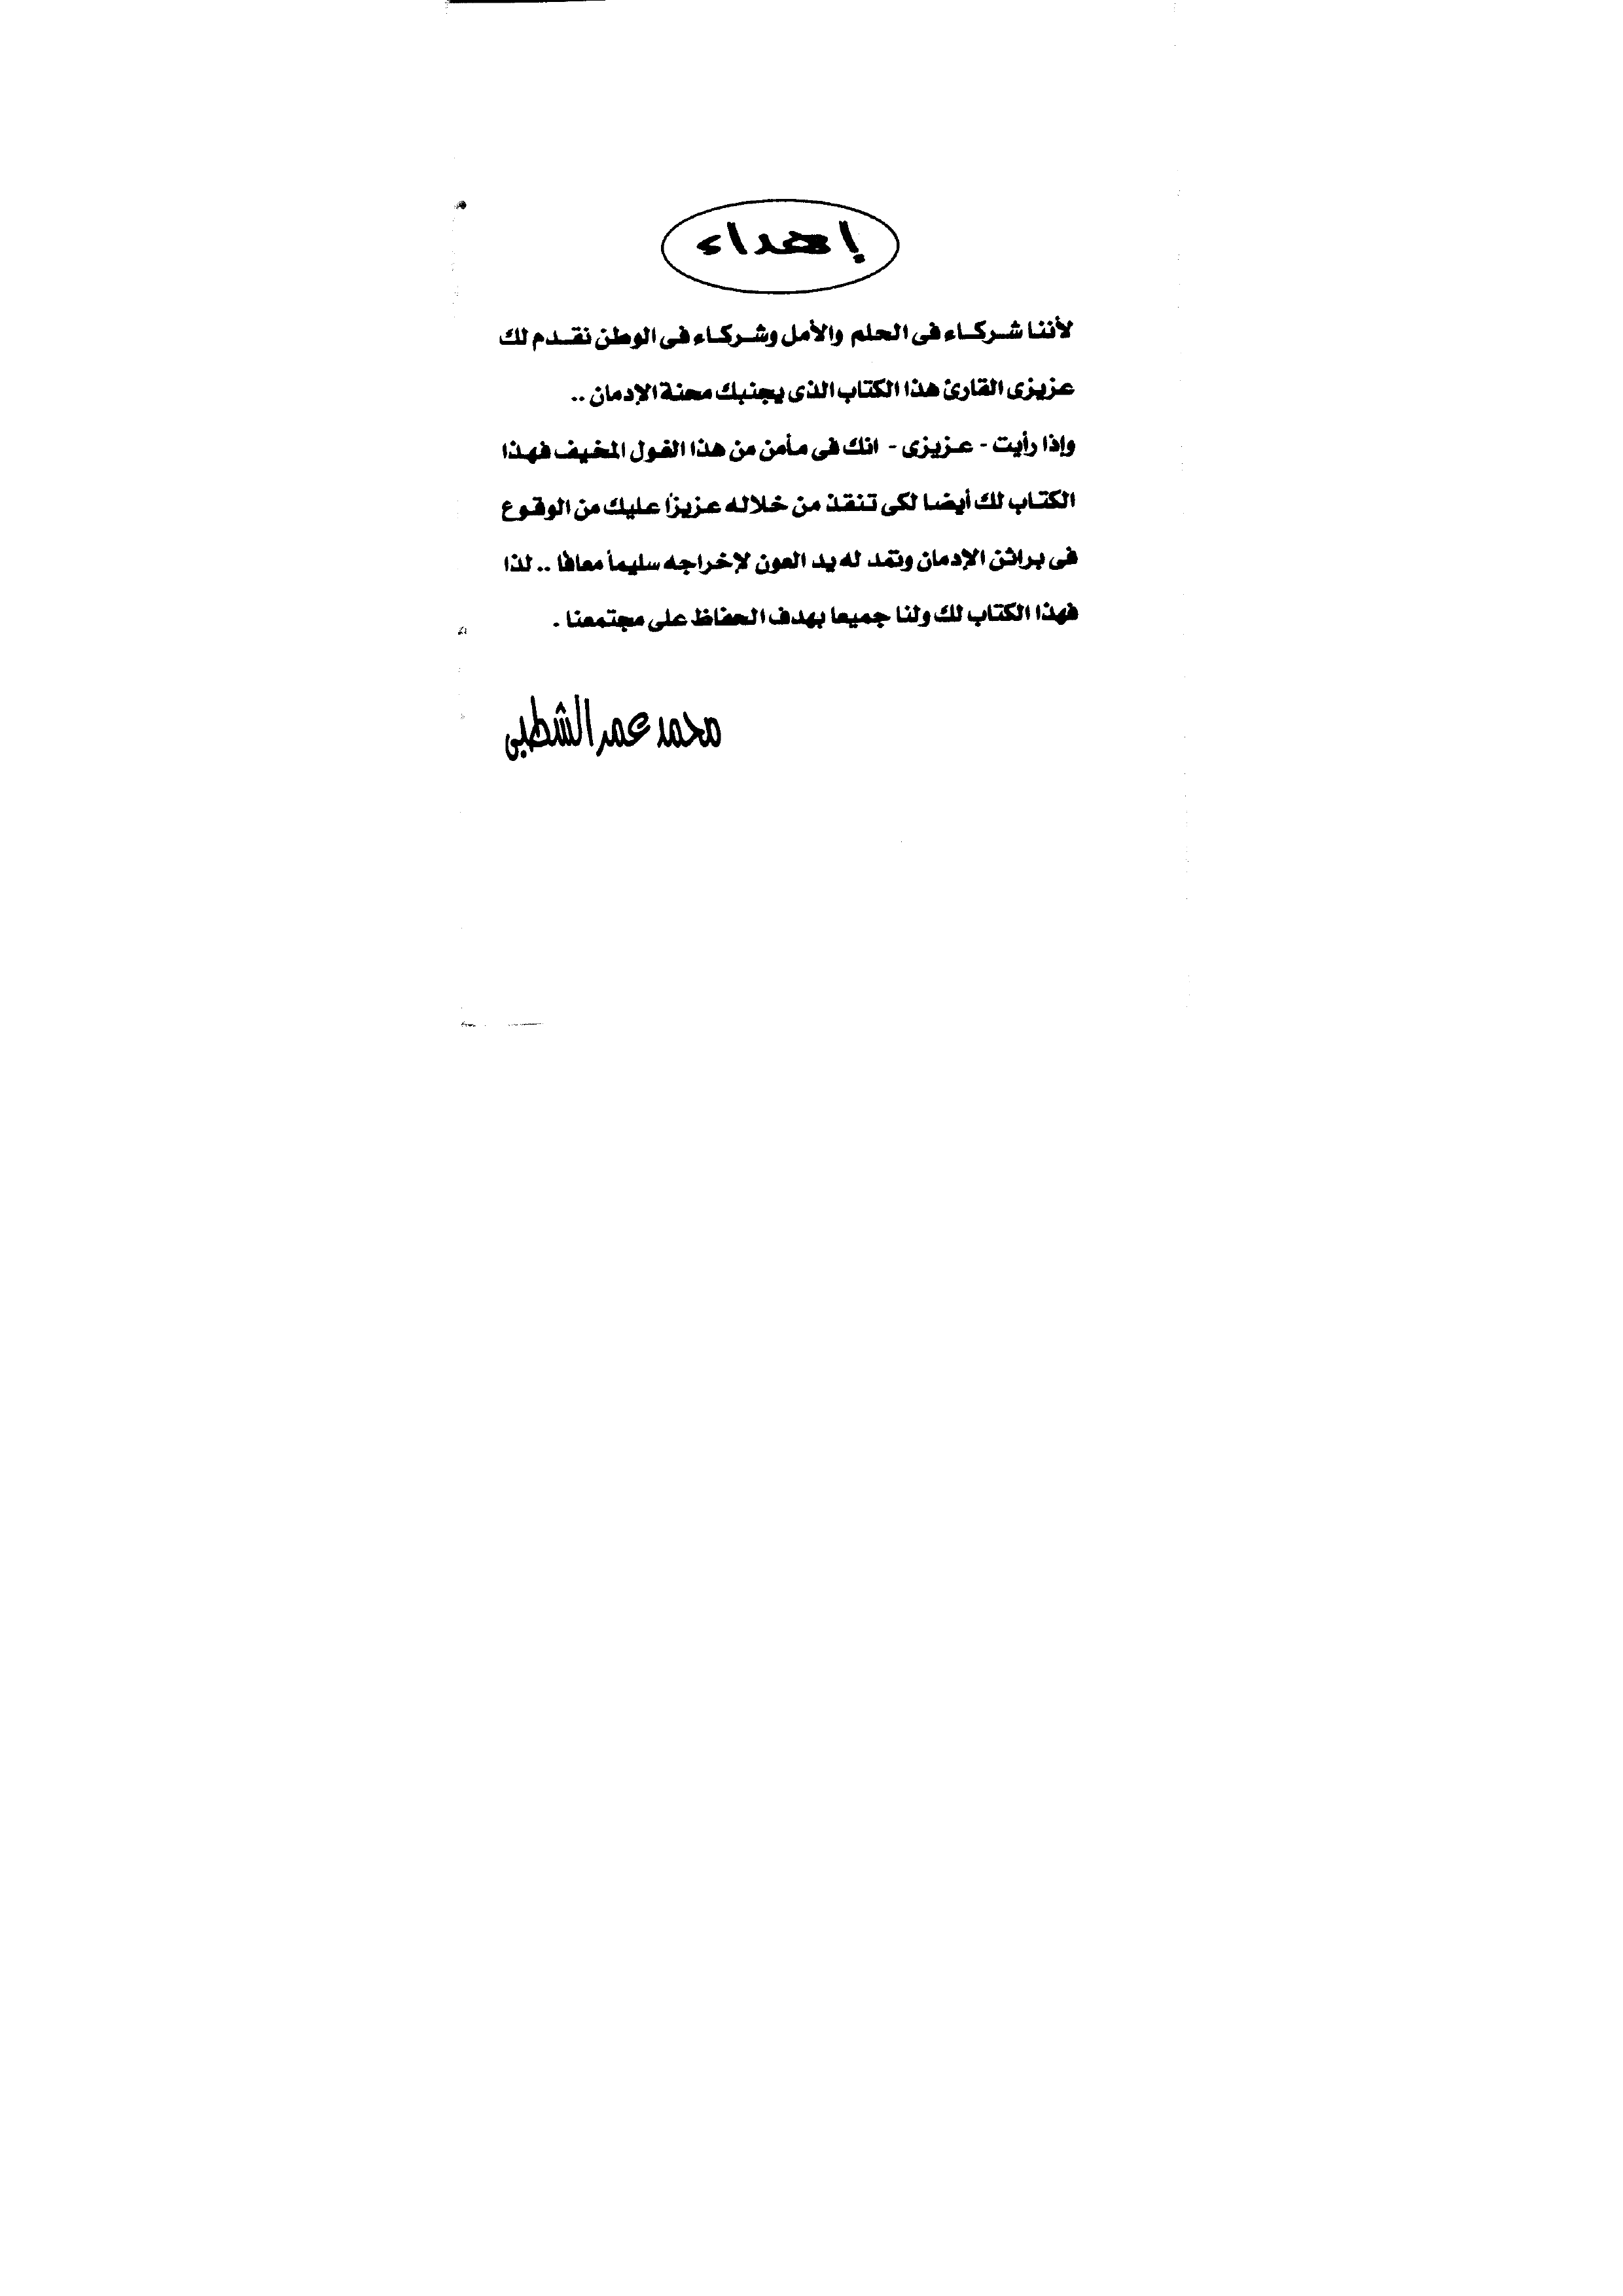 إهداء
لأننا شركاء فى الحلم والأمل وشركاء فى الوطن نقدم لك
عزيزى القارئ هذا الكتاب الذى يجنبك محنة الإدمان ..
وإذا رأيت - عزيزى - انك فى مأمن من هذا الغول المخيف فهذا
الكتاب لك أيضا لكى تنقذ من خلاله عزيزًا عليك من الوقوع
فى براثن الإدمان وتمد له يد العون لإخراجه سليماً معافا .. لذا
فهذا الكتاب لك ولنا جميعا بهدف الحفاظ على مجتمعنا .
محمد عمر الشطبى